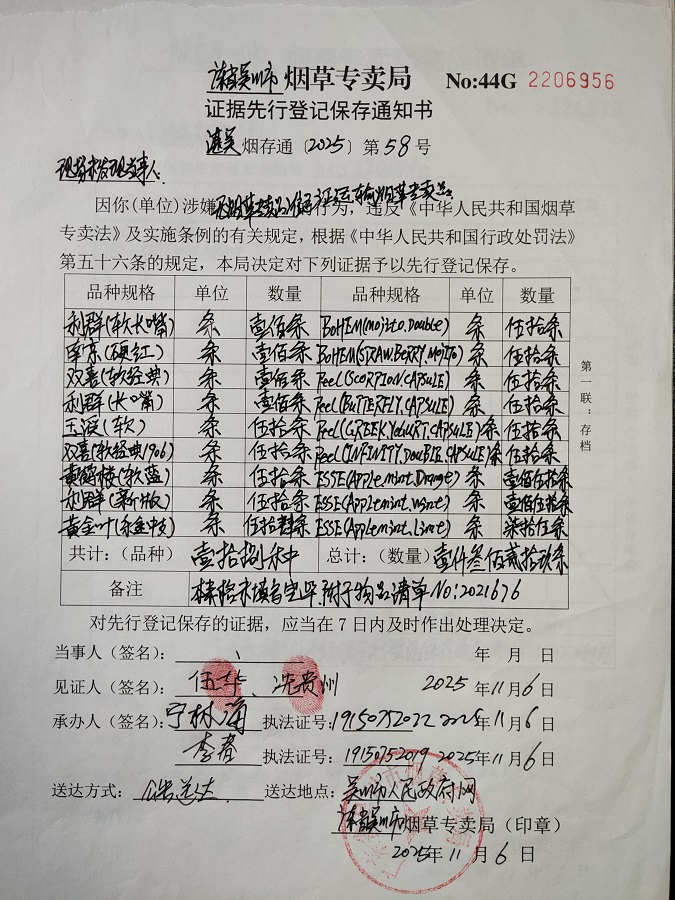 吴川市 烟草专卖局 No:44G 2206956
证据先行登记保存通知书
湛吴 烟存通〔2025〕第 58 号
现场未发现当事人:
因你(单位)涉嫌 行为，违反《中华人民共和国烟草
专卖法》及实施条例的有关规定，根据《中华人民共和国行政处罚法》
第五十六条的规定，本局决定对下列证据予以先行登记保存。
品种规格 单位 数量 品种规格 单位 数量
利群(软长嘴) 条 壹佰条 BOHEM(Mojito.Double) 条 伍拾条
南京(硬红) 条 壹佰条 BOHEM(STRAWBERRY.MOJITO) 条 伍拾条
双喜(软经典) 条 壹佰条 Peel(SCORPION.CAPSULE) 条 伍拾条
利群(长嘴) 条 壹佰条 Peel(BUTTERFLY.CAPSULE) 条 伍拾条
玉溪(软) 条 伍拾条 Peel(GREEK.YOGURT.CAPSULE) 条 伍拾条
双喜(软经典1906) 条 伍拾条 Peel(INFINITY.DOUBLE.CAPSULE) 条 伍拾条
黄鹤楼(软蓝) 条 伍拾条 ESSE(Applemint.Orange) 条 壹佰伍拾条
利群(新版) 条 伍拾条 ESSE(Applemint.) 条 壹佰伍拾条
黄金叶(乐途中支) 条 伍拾肆条 ESSE(Applemint.Lime) 条 柒拾伍条
第一联：存档
共计：(品种) 壹拾捌种 总计：(数量) 壹仟叁佰贰拾玖条
备注 附于物品清单No:2021676
对先行登记保存的证据，应当在 7 日内及时作出处理决定。
当事人(签名)： 年 月 日
见证人(签名)： 伍华、冼贵州 2025 年 11 月 6 日
承办人(签名)： 宁林海 执法证号: 19150752022 2025 年 11 月 6 日
李春 执法证号: 19150752019 2025 年 11 月 6 日
送达方式： 公告送达 送达地点： 吴川市人民政府网
吴川市 烟草专卖局（印章）
2025 年 11 月 6 日